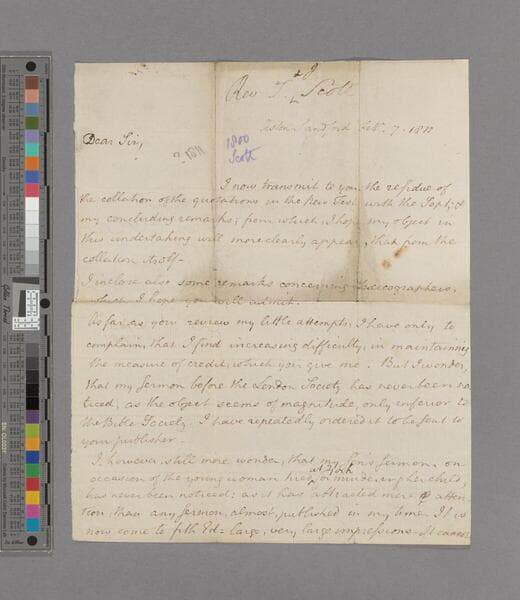 Rev T. Scott
Aston Sandford Feb. 7. 1811
Dear Sir,
? 1811
1800
Scott
I now transmit to you the residue of
the collation of the quotations in the New Test with the Sept. &
my concluding remarks; from which I hope my object in
this undertaking will more clearly appear, than from the
collation itself-
I inclose also some remarks concerning Lexicographers,
which I hope you will admit.
As far as you review my little attempts, I have only to
complain, that I find increasing difficulty, in maintaining
the measure of credit, which you give me. But I wonder,
that my sermon before the London Society has never been no
ticed, as the object seems of magnitude, only inferior to
the Bible Society. I have repeatedly ordered it to be sent to
your publisher-
I however still more wonder, that my sermon, on
occasion of the young woman tried for murdering her child,
has never been noticed: as it has attracted more atten
tion, than any sermon, almost, published in my time. It is
now come to fifth Ed- large, very large impressions- It cannot